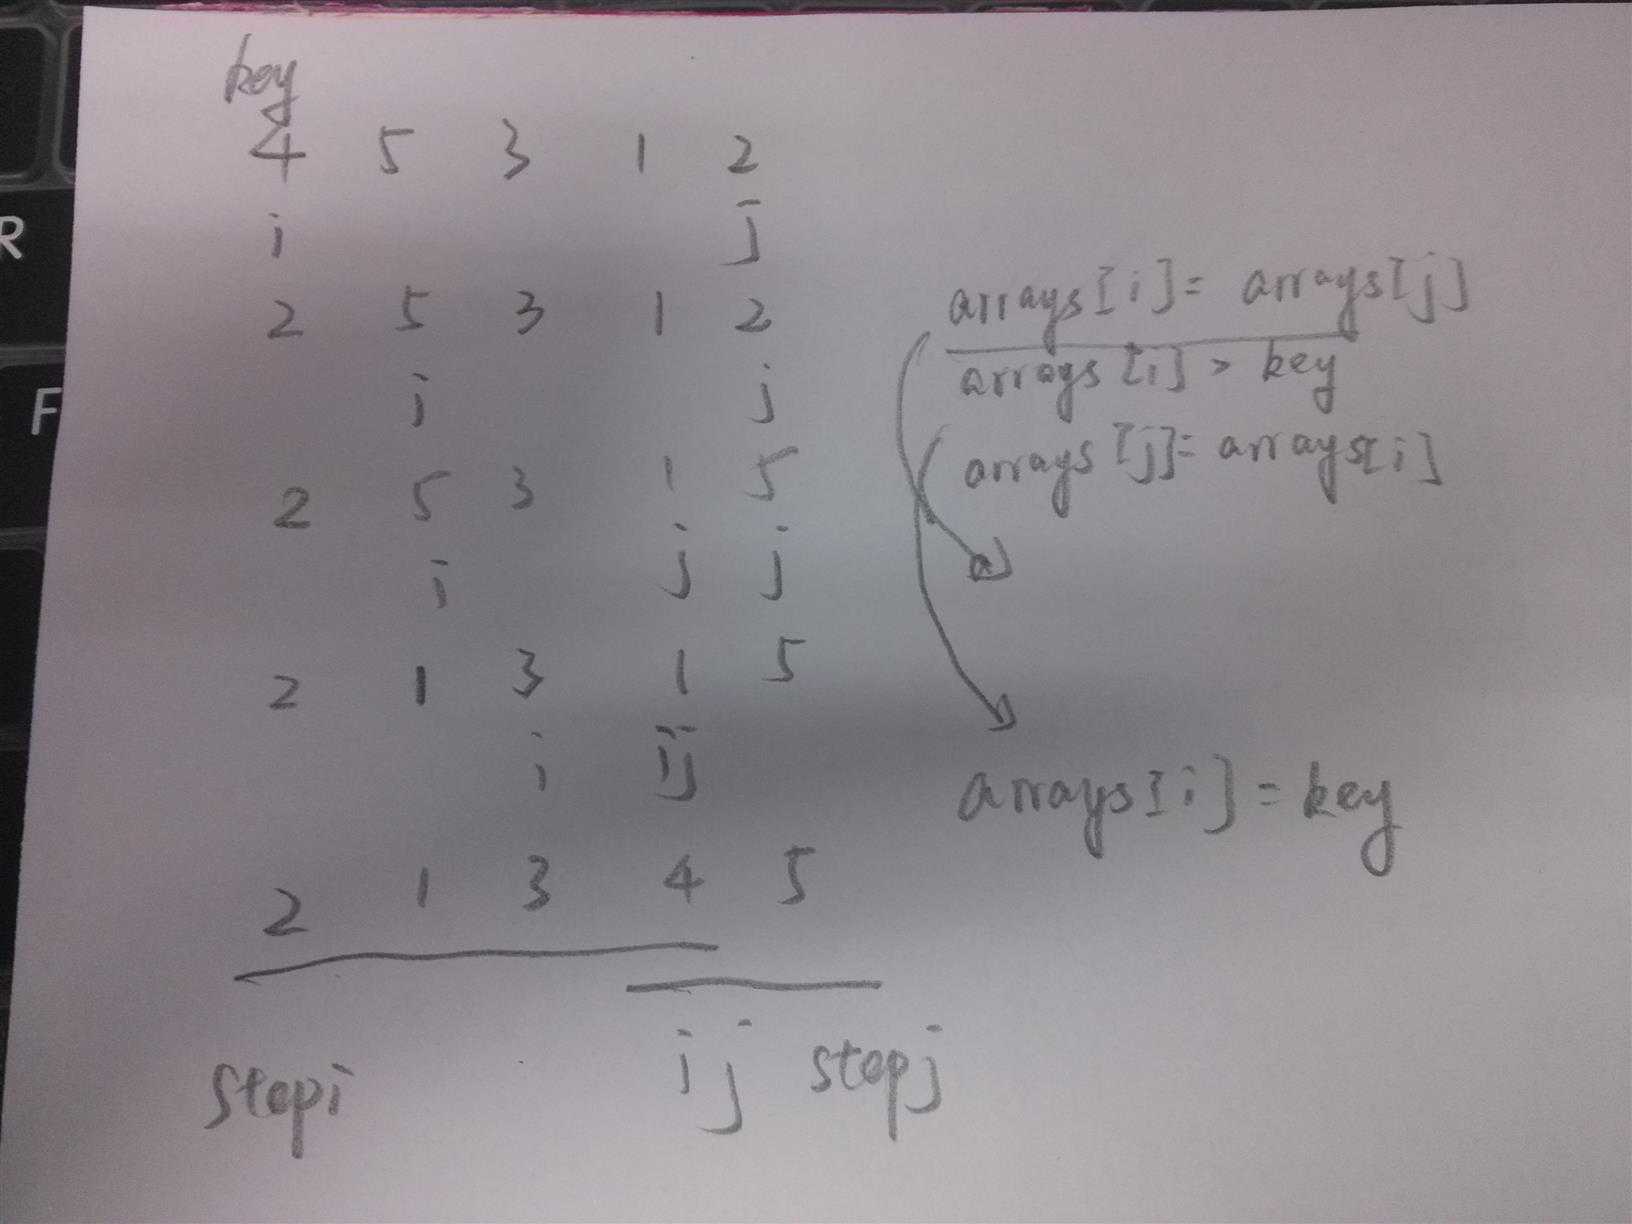 key
4 5 3 1 2
i j
2 5 3 1 2
i j
2 5 3 1 5
i j j
2 1 3 1 5
i i j
2 1 3 4 5
i j
stepi stepj
arrays[i]= arrays[j]
arrays[i] > key
arrays[j]= arrays[i]
arrays[i] = key
R
F